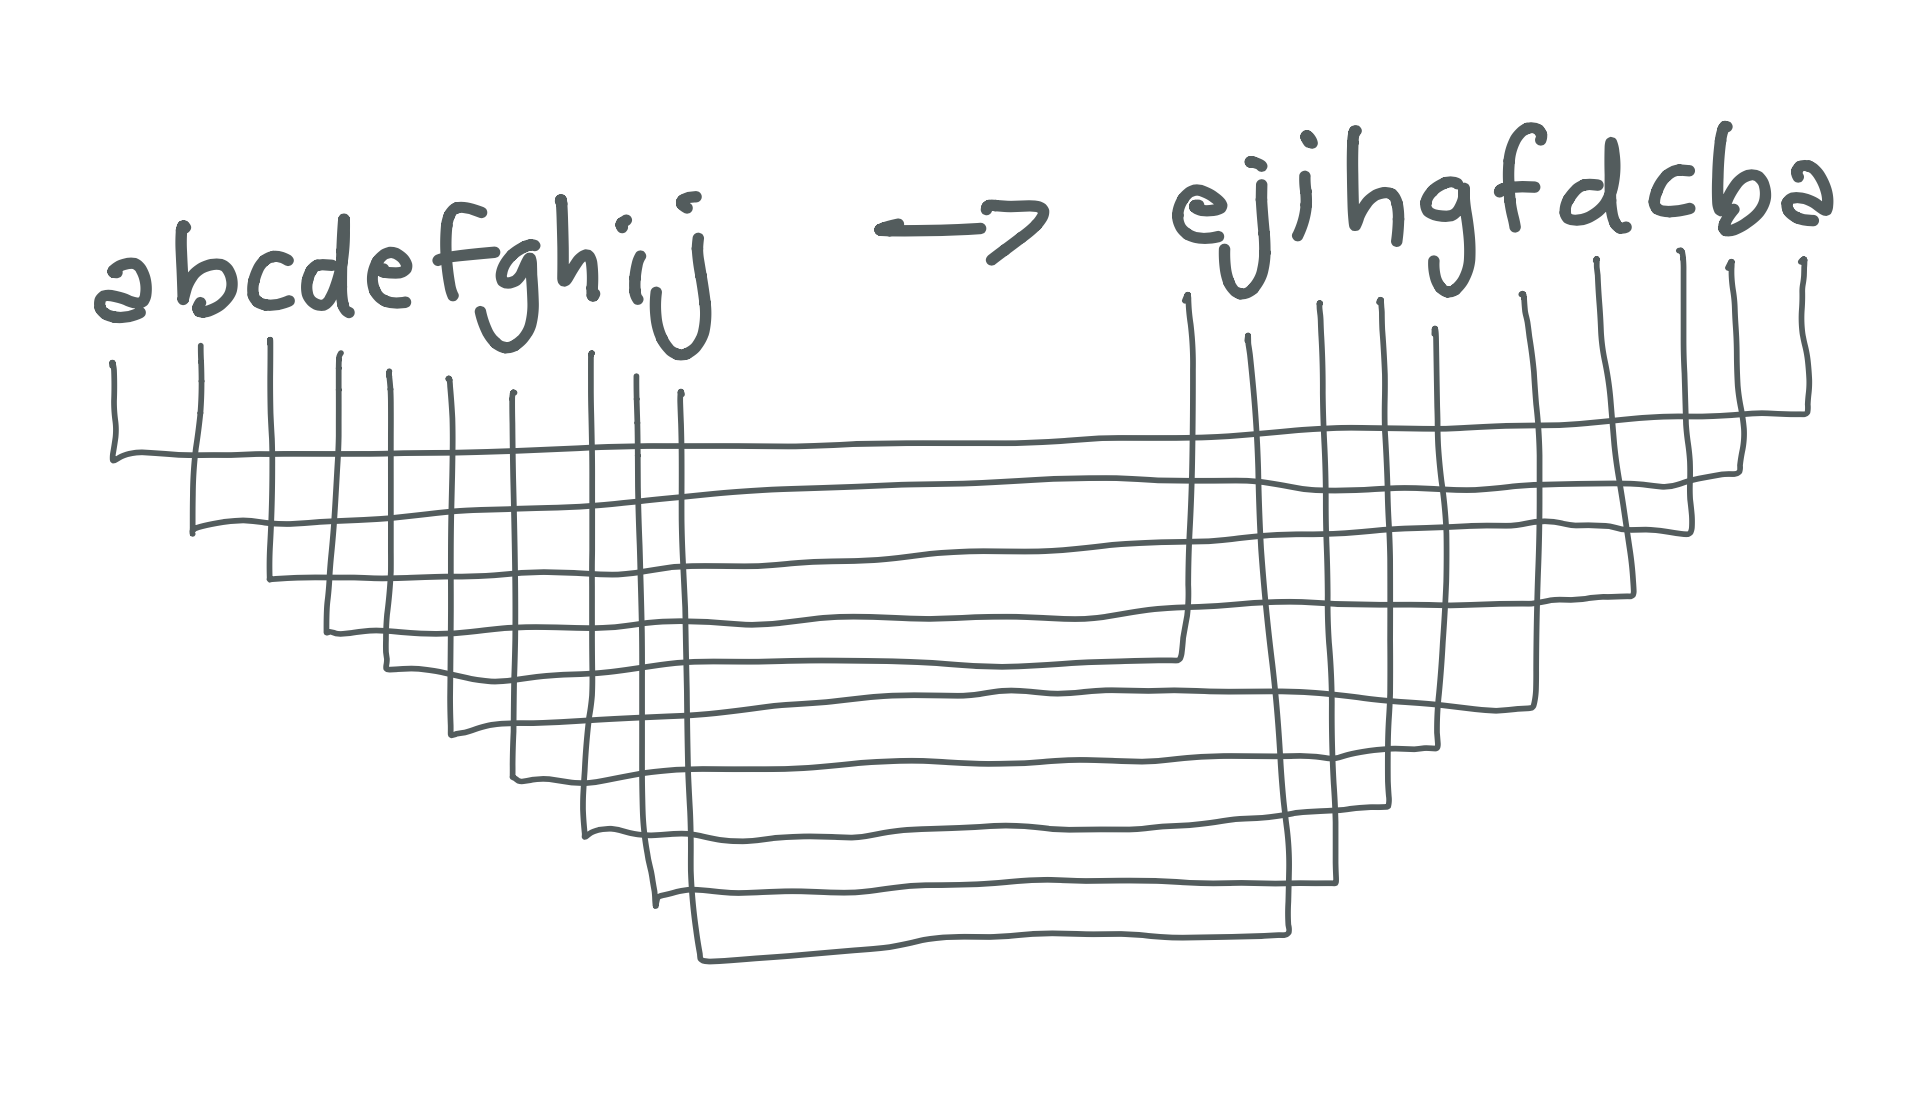 abcdefghij → ejihgfdcba